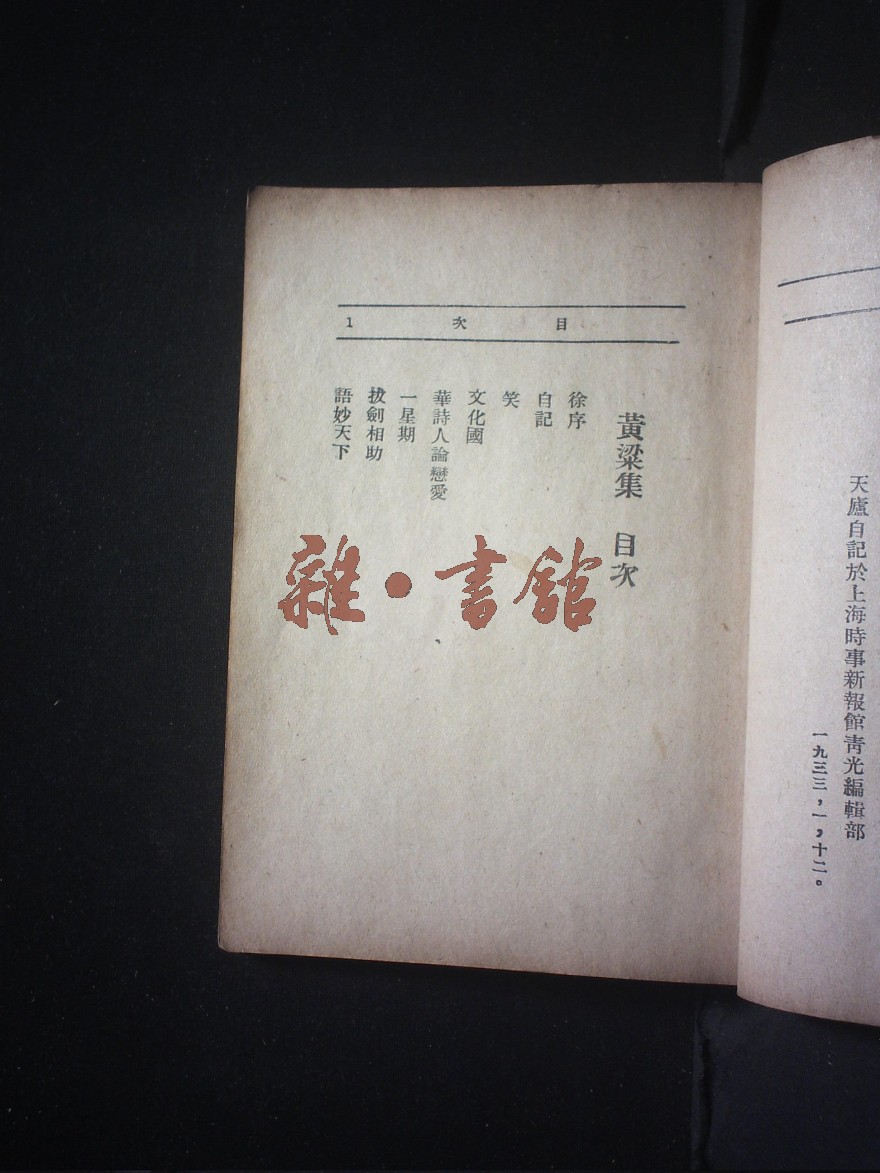 天廬自記於上海時事新報館靑光編輯部
一九三三，一，十二。
目次 1
黃粱集 目次
徐序
自記
笑
文化國
華詩人論戀愛
一星期
拔劍相助
語妙天下
雜·書館